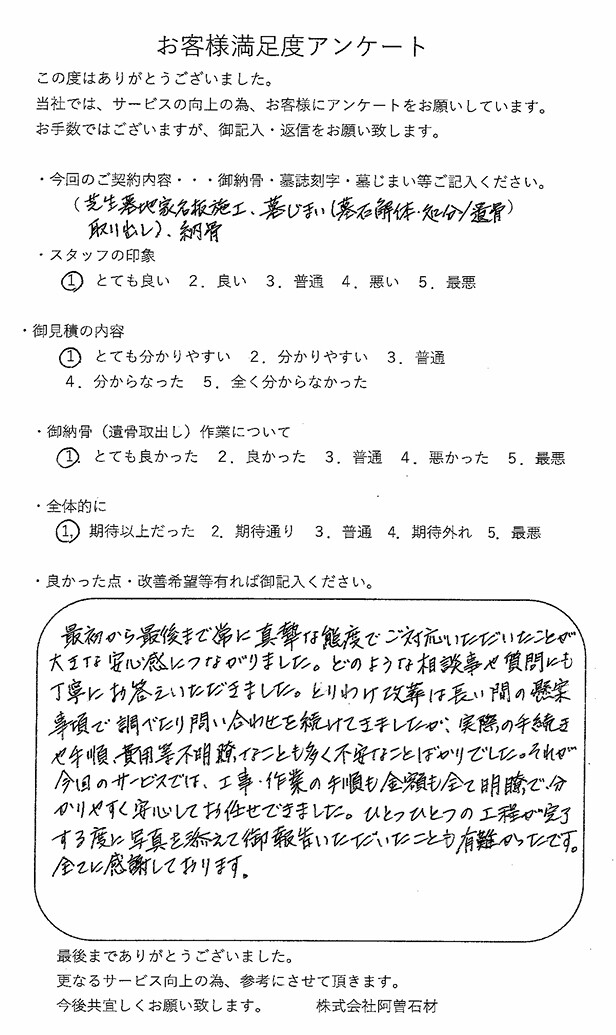 お客様満足度アンケート
この度はありがとうございました。
当社では、サービスの向上の為、お客様にアンケートをお願いしています。
お手数ではございますが、御記入・返信をお願い致します。
・今回のご契約内容・・・御納骨・墓誌刻字・墓じまい等ご記入ください。
(芝生墓地家名板施工、墓じまい(墓石解体・処分/遺骨
取り出し)、納骨
・スタッフの印象
① とても良い 2．良い 3．普通 4．悪い 5．最悪
・御見積の内容
① とても分かりやすい 2．分かりやすい 3．普通
4．分からなった 5．全く分からなかった
・御納骨（遺骨取出し）作業について
① とても良かった 2．良かった 3．普通 4．悪かった 5．最悪
・全体的に
① 期待以上だった 2．期待通り 3．普通 4．期待外れ 5．最悪
・良かった点・改善希望等有れば御記入ください。
最初から最後まで常に真摯な態度でご対応いただいたことが
大きな安心感につながりました。どのような相談事や質問にも
丁寧にお答えいただきました。とりわけ改葬は長い間の懸案
事項で調べたり問い合わせを続けてきましたが、実際の手続き
や手順、費用等不明瞭なことも多く不安なことばかりでした。それが
今回のサービスでは、工事・作業の手順も金額も全て明瞭で分
かりやすく安心してお任せできました。ひとつひとつの工程が完了
する度に写真を添えて御報告いただいたことも有難かったです。
全てに感謝しております。
最後までありがとうございました。
更なるサービス向上の為、参考にさせて頂きます。
今後共宜しくお願い致します。 株式会社阿曽石材